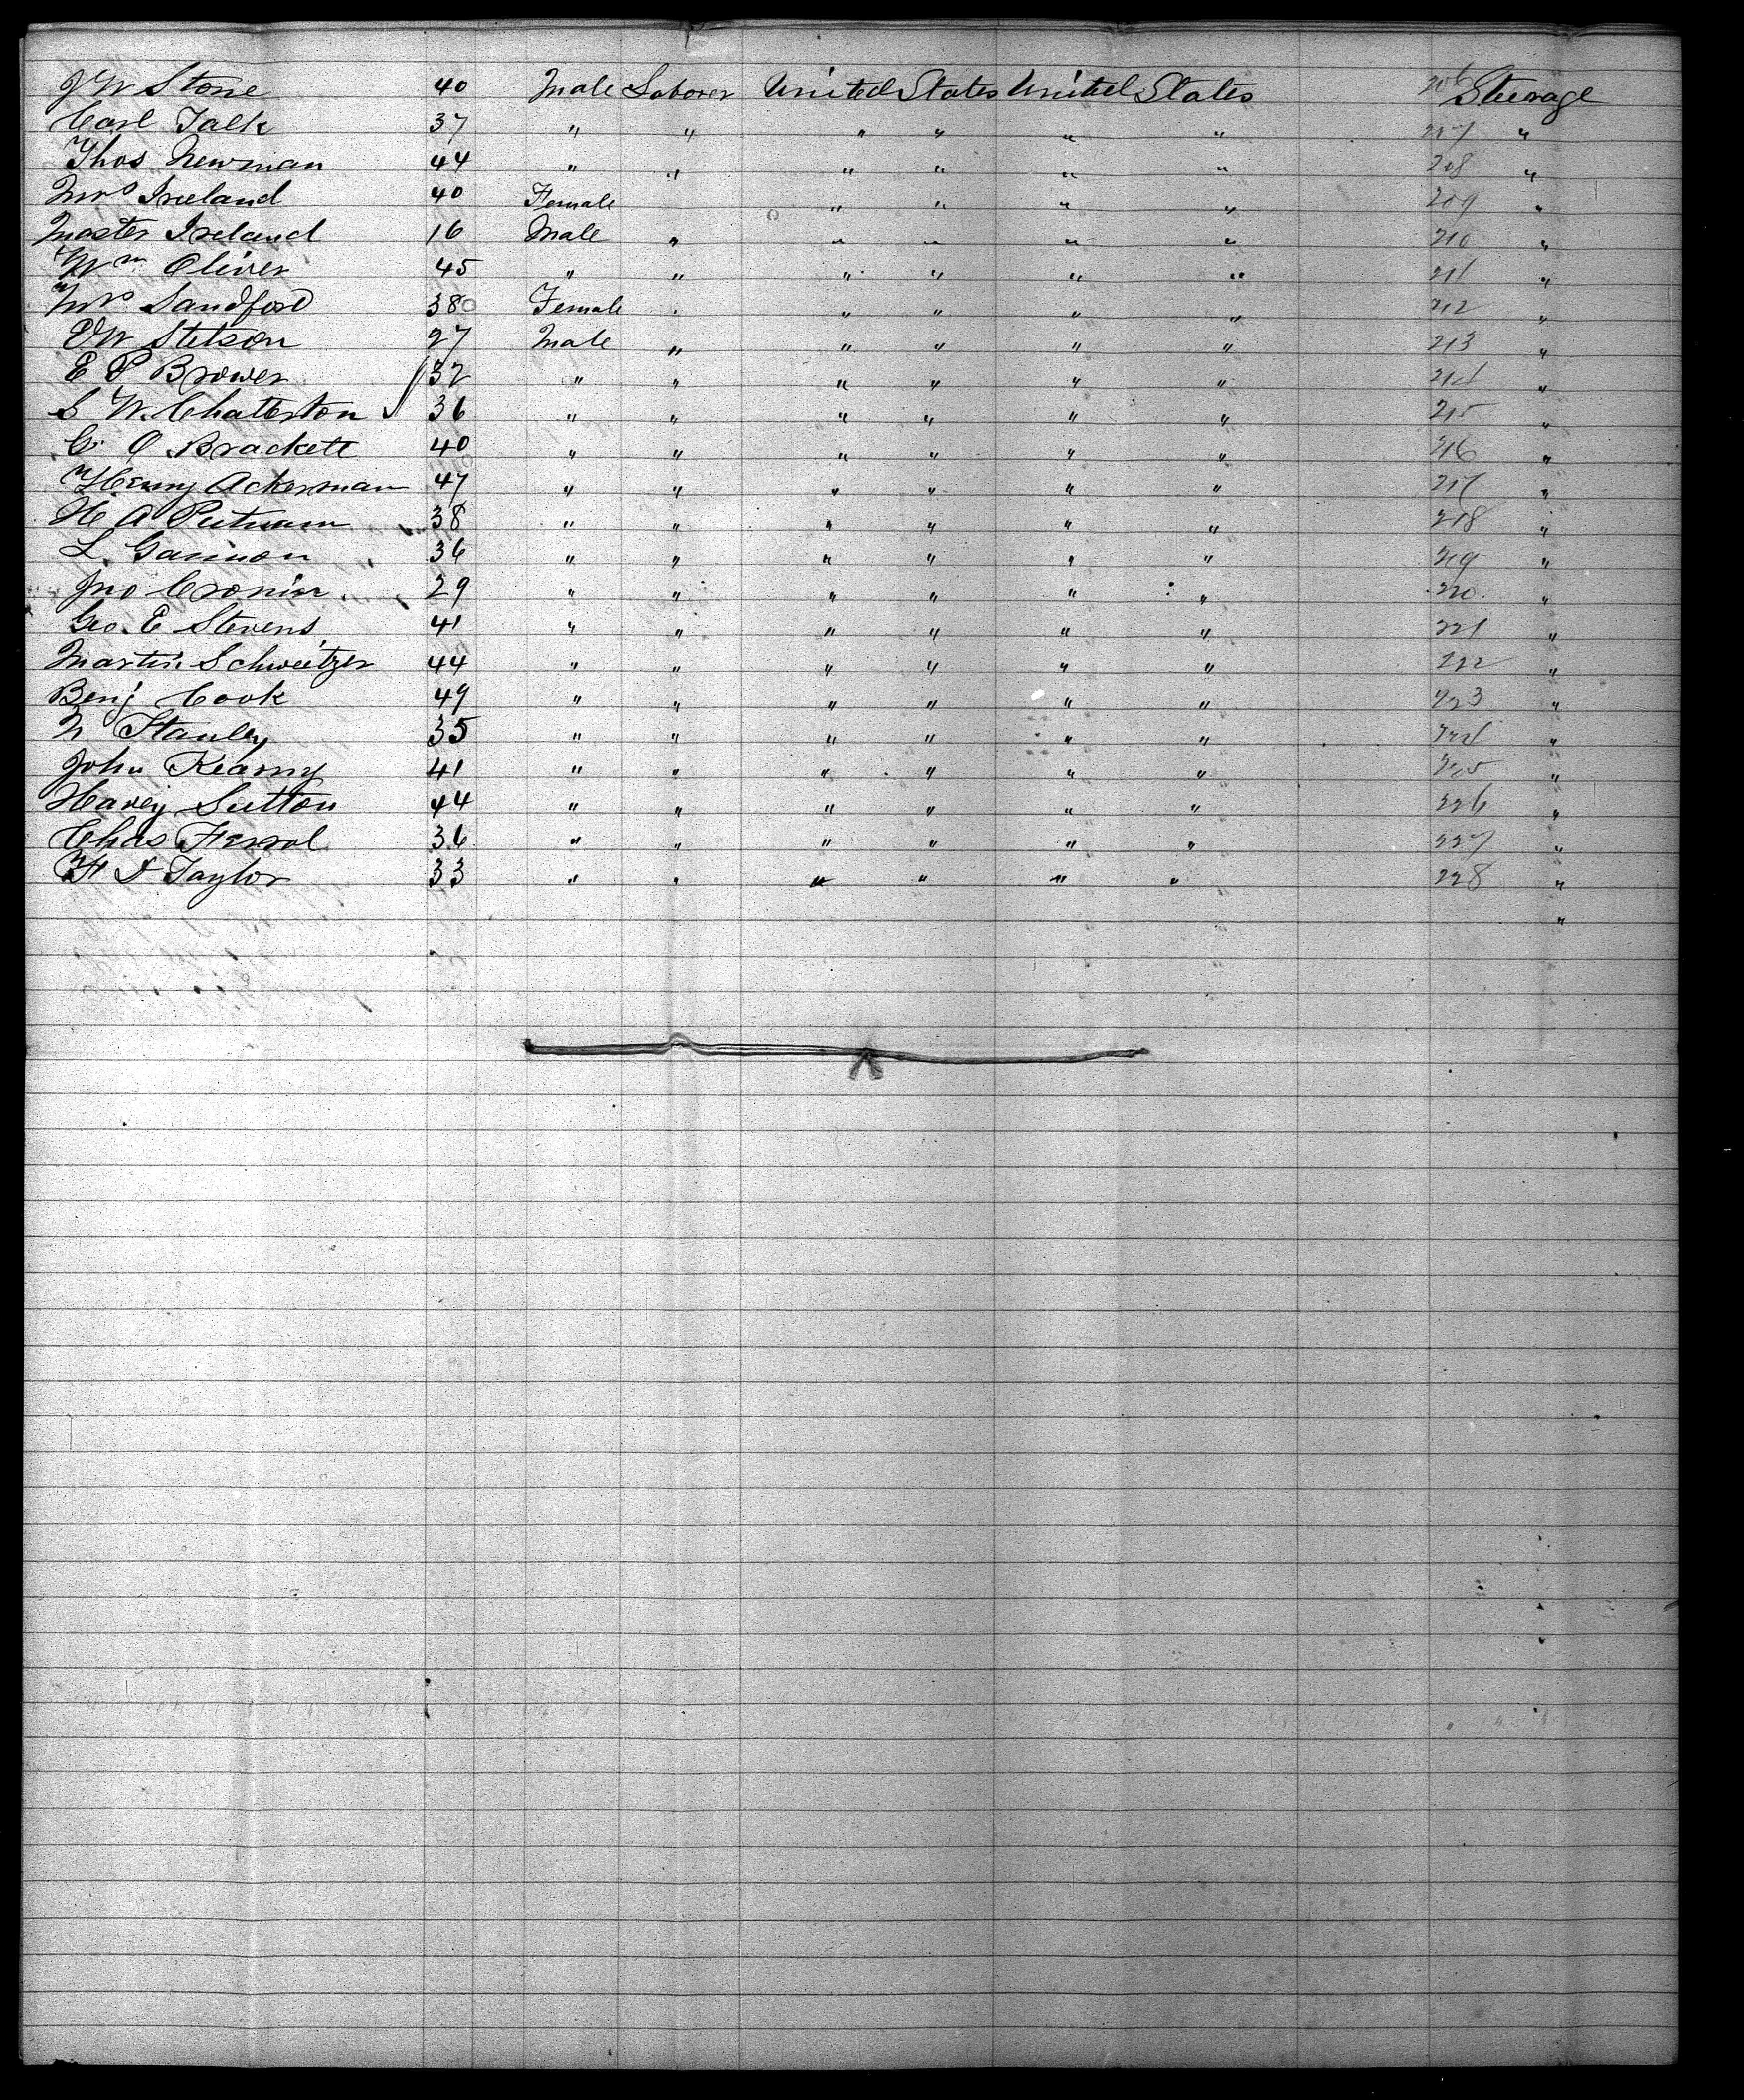 J W Stone 40 Male Laborer United States United States 206 Steerage
Carl Falk 37 " " " " " " 207 "
Thos Newman 44 " " " " " " 208 "
Mrs Ireland 40 Female " " " " 209 "
Master Ireland 16 Male " " " " " 210 "
Wm Oliver 45 " " " " " " 211 "
Mrs Sandford 38 Female " " " " " 212 "
W Stetson 27 Male " " " " " 213 "
E P Brower 32 " " " " " " 214 "
S W. Chatterton 36 " " " " " " 215 "
G. O Brackett 40 " " " " " " 216 "
Henry Ackerman 47 " " " " " " 217 "
H A Putnam 38 " " " " " " 218 "
L. Gannon 36 " " " " " " 219 "
Jno Cronin 29 " " " " " " 220 "
Geo. E Stevens 41 " " " " " " 221 "
Martin Schweitzer 44 " " " " " " 222 "
Benj Cook 49 " " " " " " 223 "
N Stanley 35 " " " " " " 224 "
John Kearny 41 " " " " " " 225 "
Harey Sutton 44 " " " " " " 226 "
Chas Ferrol 36 " " " " " " 227 "
Taylor 33 " " " " " " 228 "
"